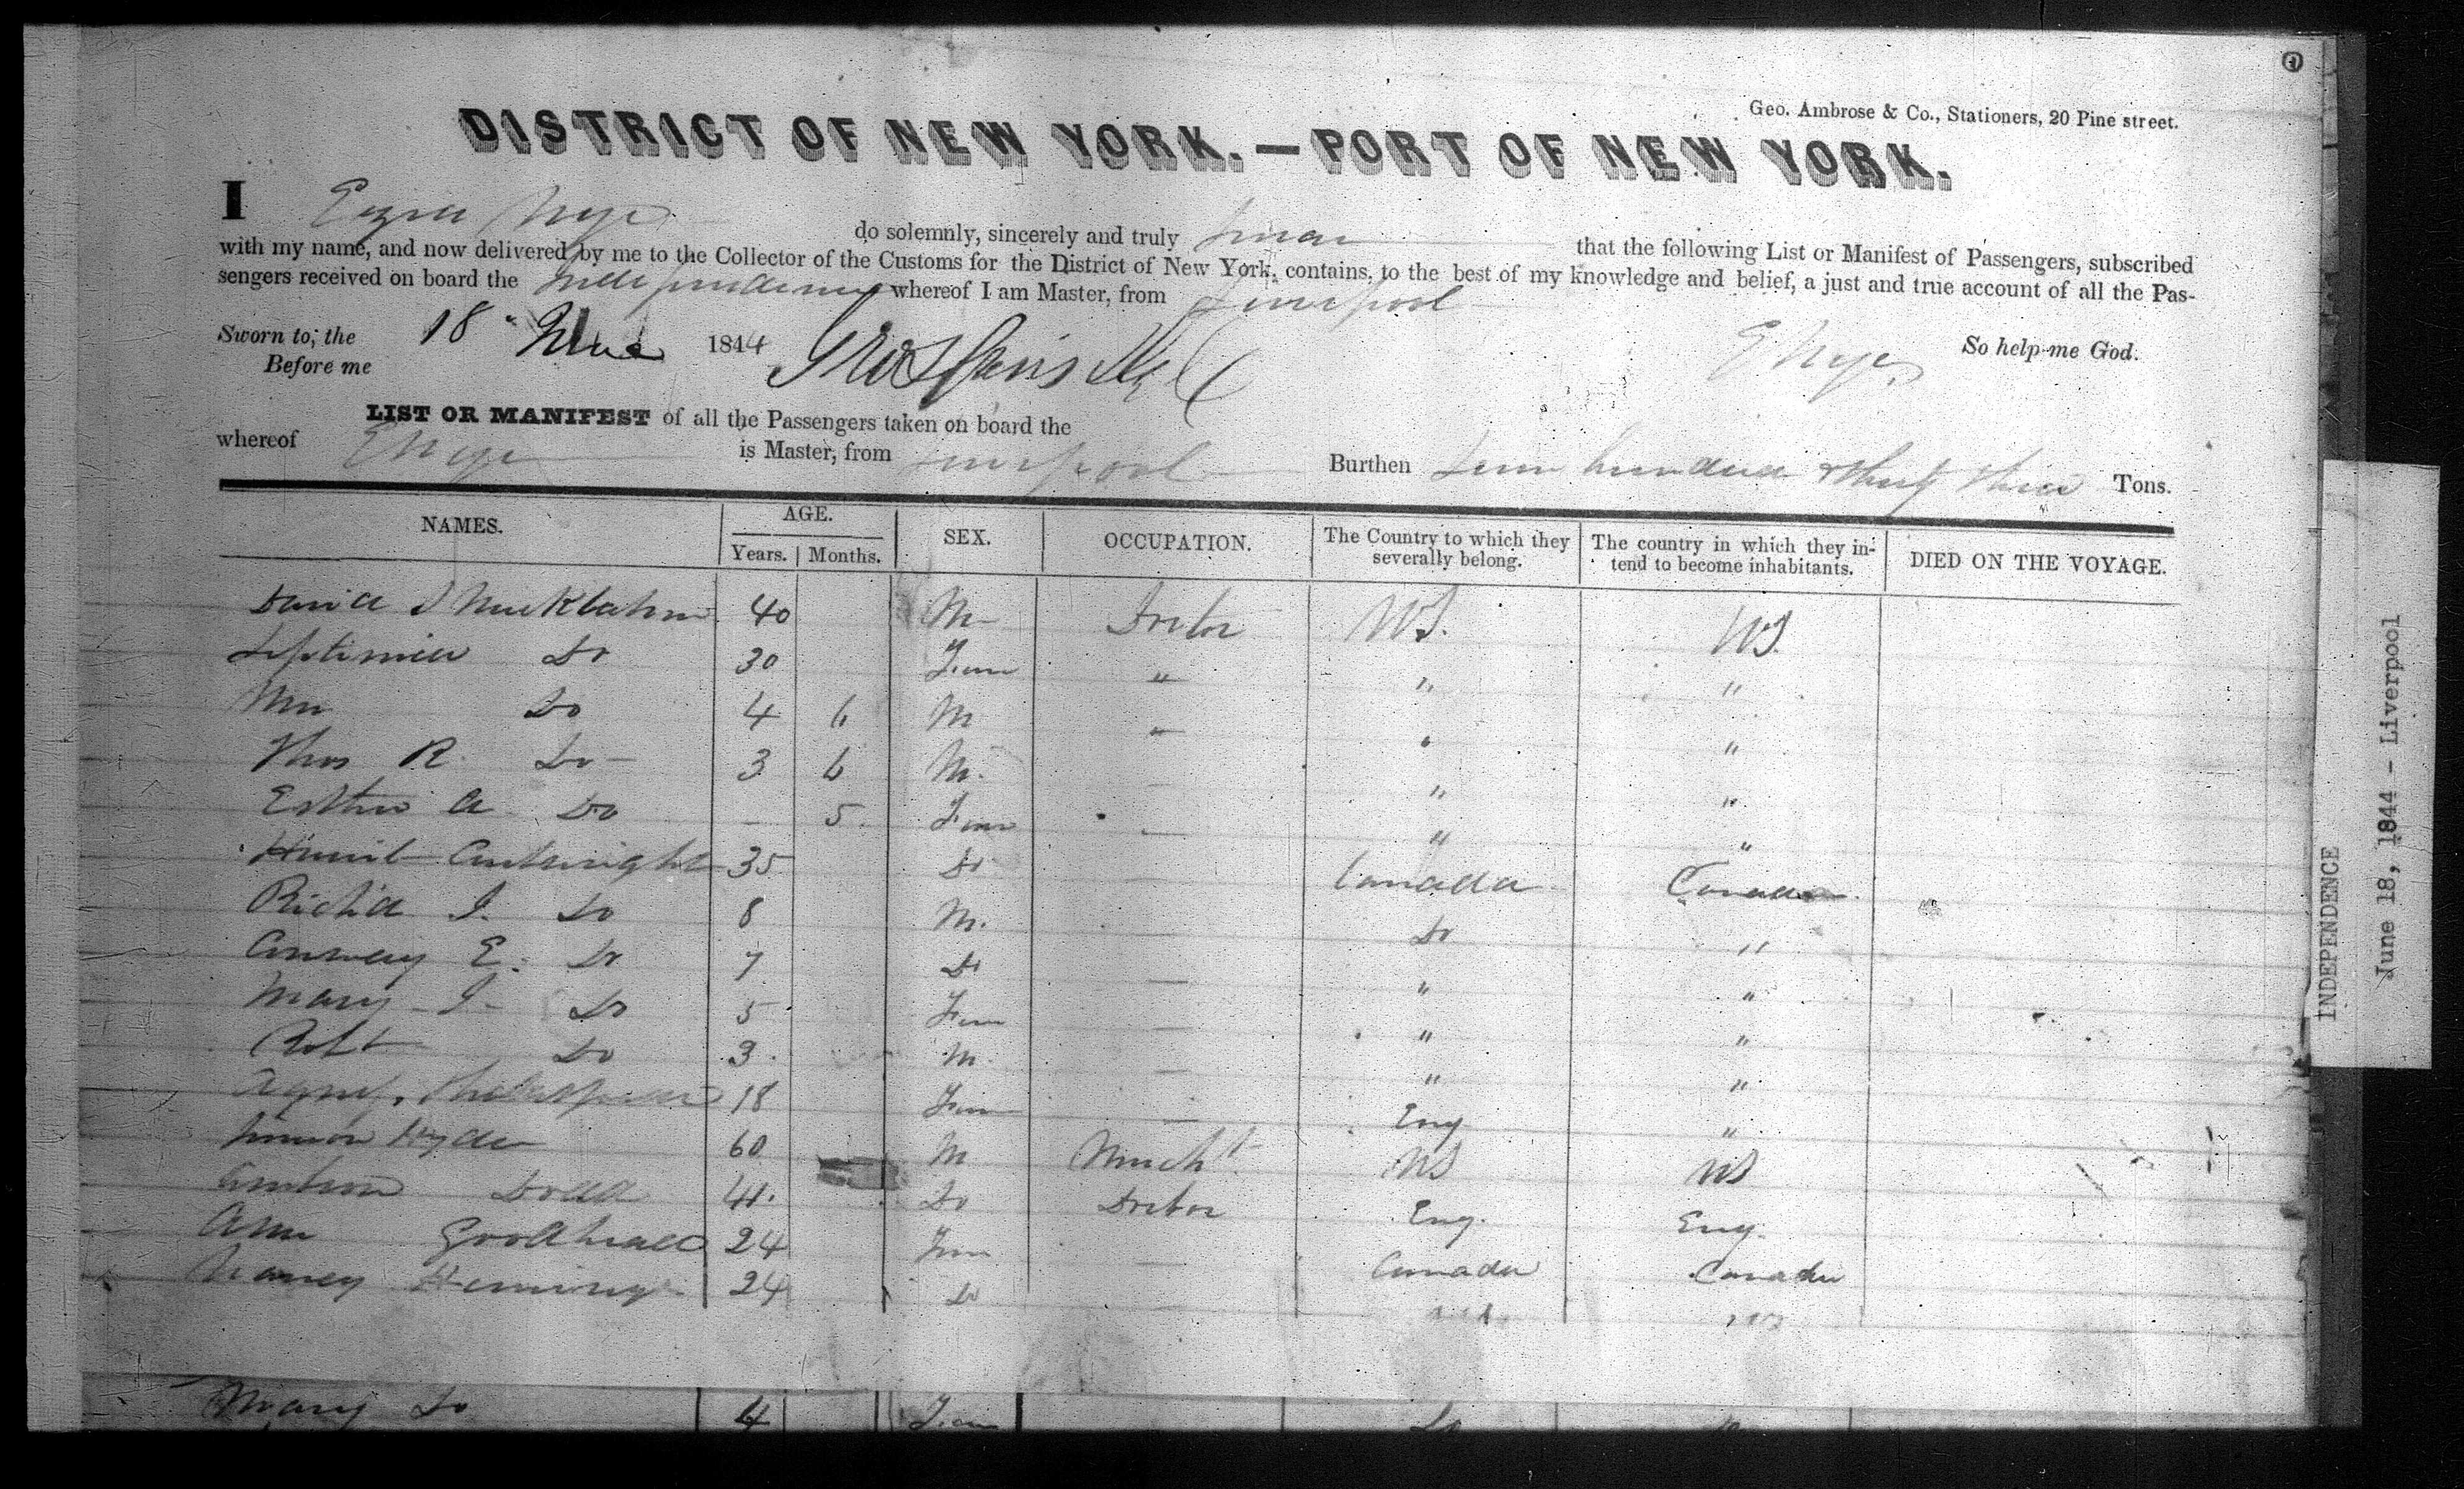 Geo. Ambrose & Co., Stationers, 20 Pine street.
DISTRICT OF NEW YORK.—PORT OF NEW YORK.
I Ezra Nye do solemnly, sincerely and truly swear that the following List or Manifest of Passengers, subscribed
with my name, and now delivered by me to the Collector of the Customs for the District of New York, contains, to the best of my knowledge and belief, a just and true account of all the Pas-
sengers received on board the Independence whereof I am Master, from Liverpool
So help me God.
Sworn to, the 18 June 1844 E Nye
Before me
LIST OR MANIFEST of all the Passengers taken on board the
whereof E Nye is Master, from Liverpool Burthen hundred & thirty three Tons.
NAMES. AGE. SEX. OCCUPATION. The Country to which they severally belong. The country in which they in-tend to become inhabitants. DIED ON THE VOYAGE.
Years. Months.
David 40 M US. US.
Septimia Do 30 Fem " " "
Wm Do 4 6 M " " "
Thos R. Do 3 6 M. " "
Esther A Do — 5 Fem — " "
Cartwright 35 Do — Canada Canada
Richd I. Do 8 M. Do "
Conway E. Do 7 Do — " "
Mary I. Do 5 Fem — " "
Robt Do 3 M. — " "
Agnes 18 Fem — Eng "
Simeon Hyde 60 M Mercht US US
Dodd 41. Do Eng. Eng.
Ann Goodhead 24 Fem — Canada Canada
Nancy Heming 24 Do
Mary Do 4 Fem Do Do
INDEPENDENCE
June 18, 1844 - Liverpool